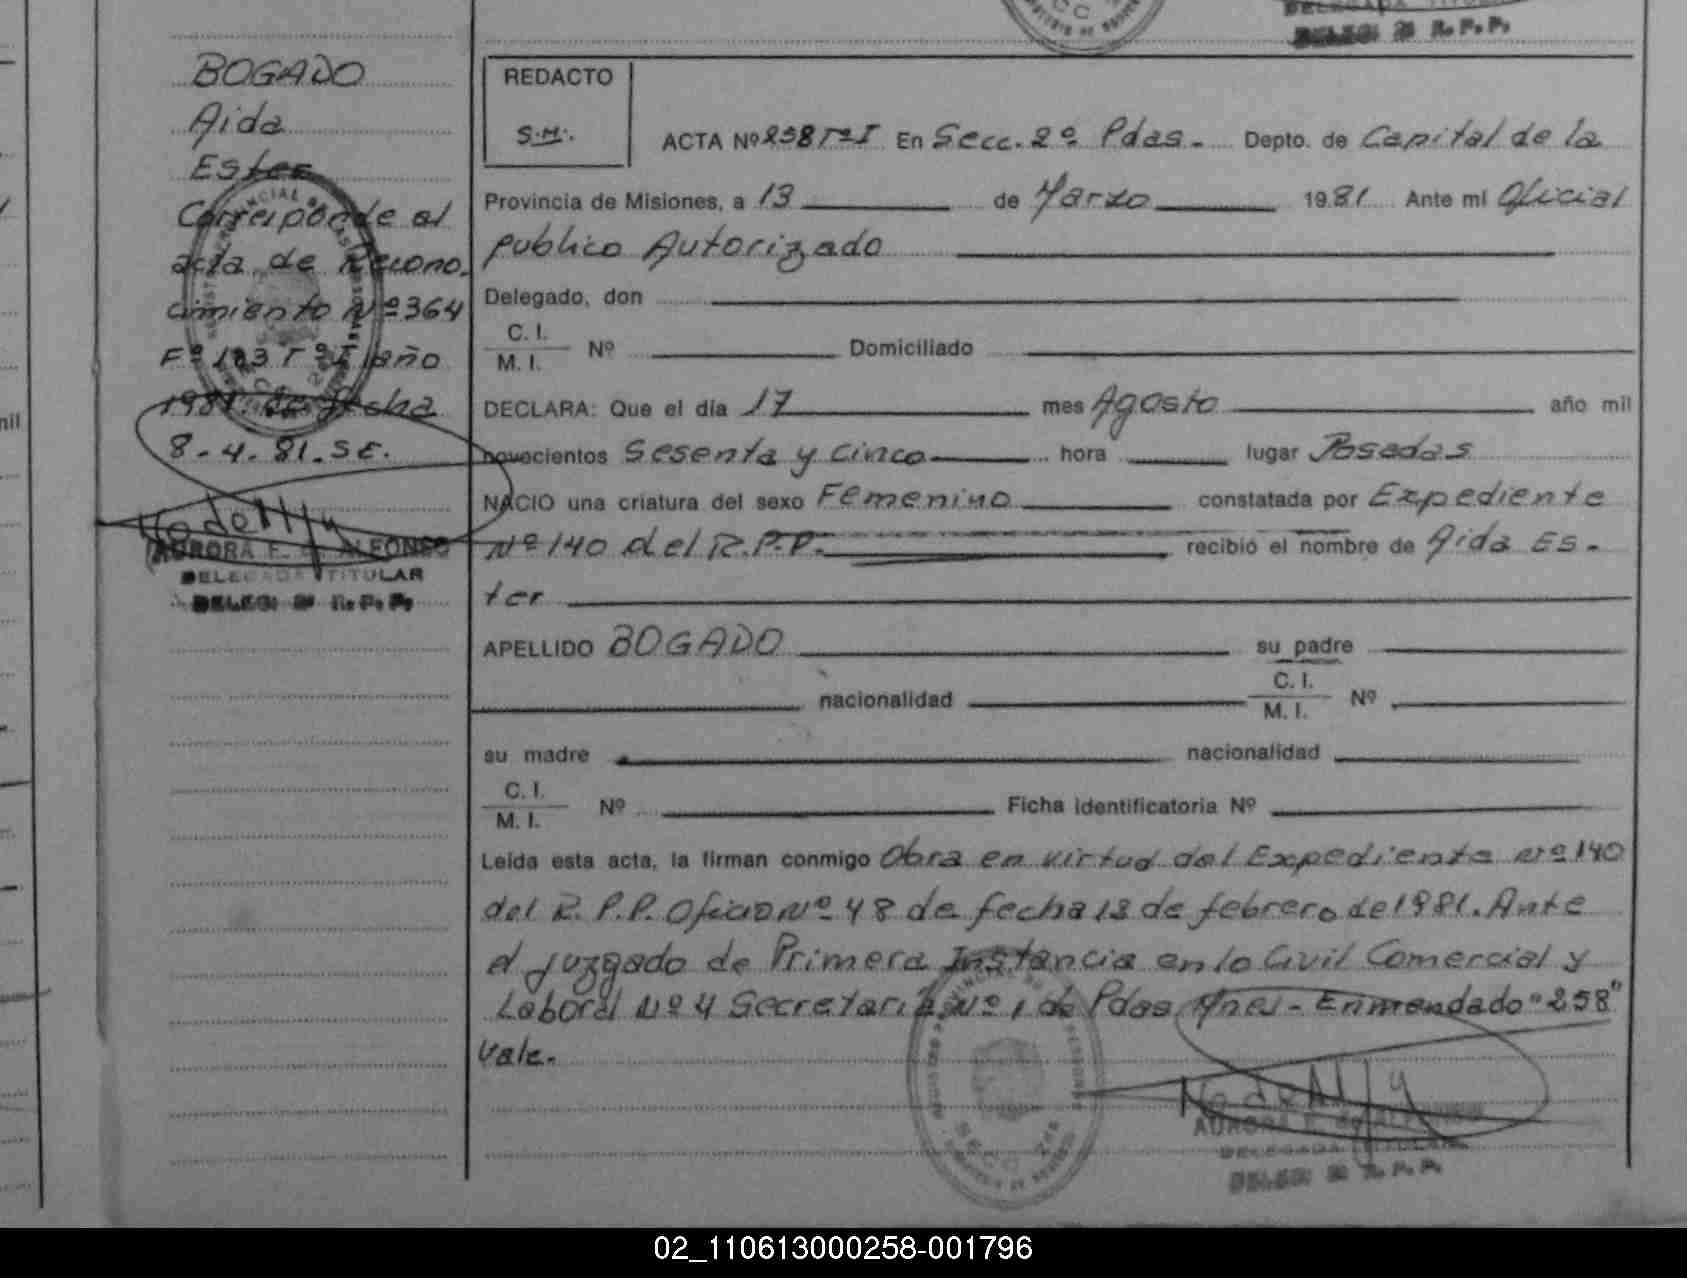 DELEGADA TITULAR
DELEG. 2ª R.P.P.
BOGADO
Aida
Ester
Corresponde al
acta de Recono-
cimiento Nº 364
Fº 183 Tº I año
1981 de fecha
8-4-81. SE.
AURORA F. de ALFONSO
DELEGADA TITULAR
DELEG. 2ª R.P.P.
REDACTO
S.M.
ACTA Nº 258 Tº I En Secc. 2º Pdas. Depto. de Capital de la
Provincia de Misiones, a 13 de Marzo 1981 Ante mí Oficial
publico Autorizado
Delegado, don
C. I.
M. I. Nº Domiciliado
DECLARA: Que el día 17 mes Agosto año mil
novecientos Sesenta y cinco hora lugar Posadas
NACIO una criatura del sexo Femenino constatada por Expediente
Nº 140 del R.P.P. recibió el nombre de Aida Es-
ter
APELLIDO BOGADO su padre
nacionalidad C. I.
M. I. Nº
su madre nacionalidad
C. I.
M. I. Nº Ficha identificatoria Nº
Leída esta acta, la firman conmigo Obra en virtud del Expediente Nº 140
del R.P.P. Oficio Nº 48 de fecha 13 de febrero de 1981. Ante
el juzgado de Primera Instancia en lo Civil Comercial y
Laboral Nº 4 Secretaría Nº 1 de Pdas Mnes - Enmendado "258"
Vale.
AURORA F. de ALFONSO
DELEGADA TITULAR
DELEG. 2ª R.P.P.
02_110613000258-001796